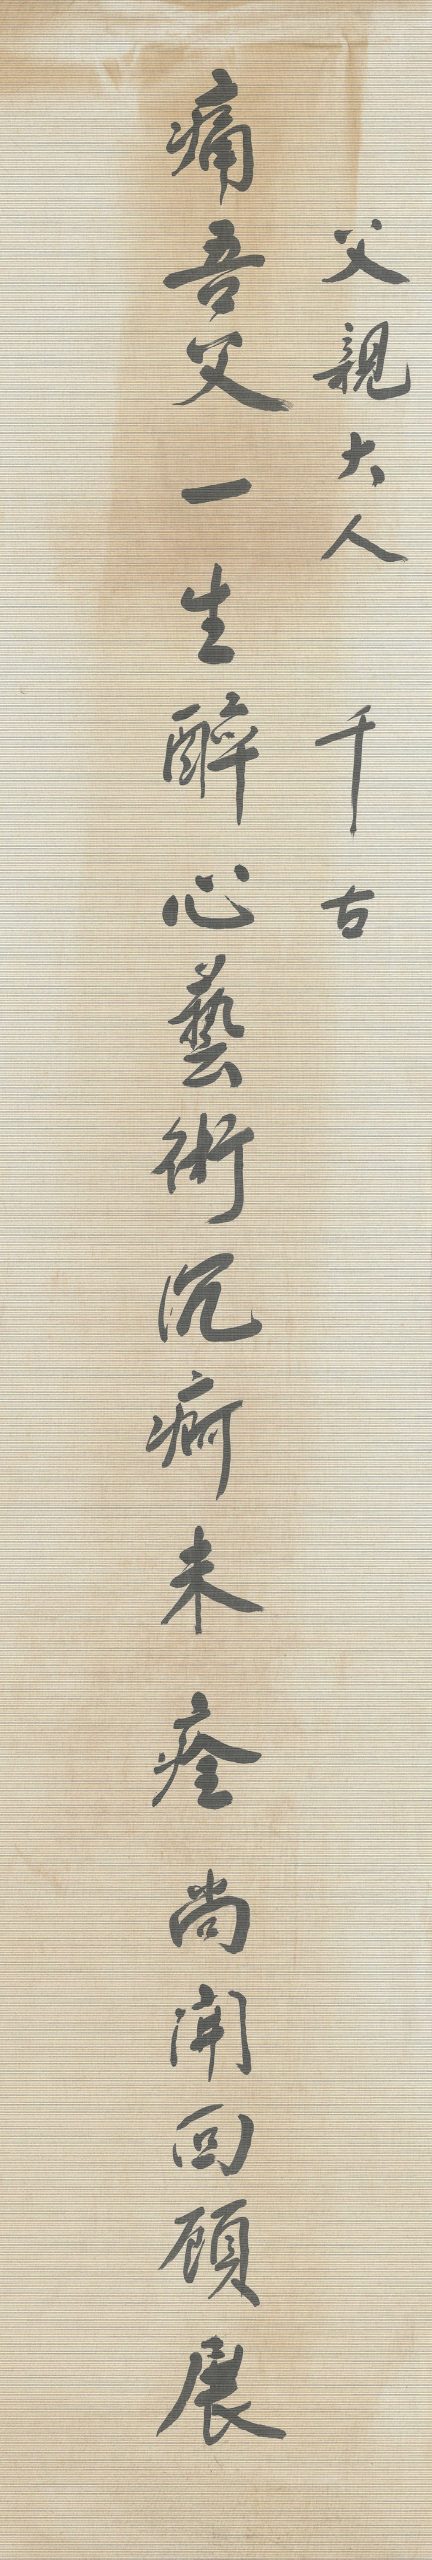 父親大人 千古
痛吾父一生醉心藝術沉疴未痊尚開回顧展